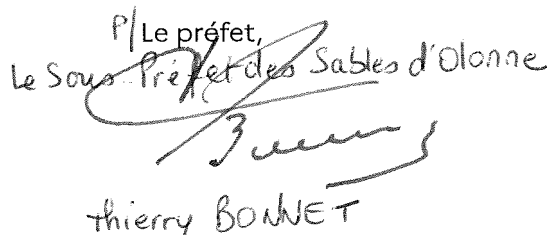 P/ Le préfet,
Le Sous Préfet des Sables d'Olonne
Thierry BONNET